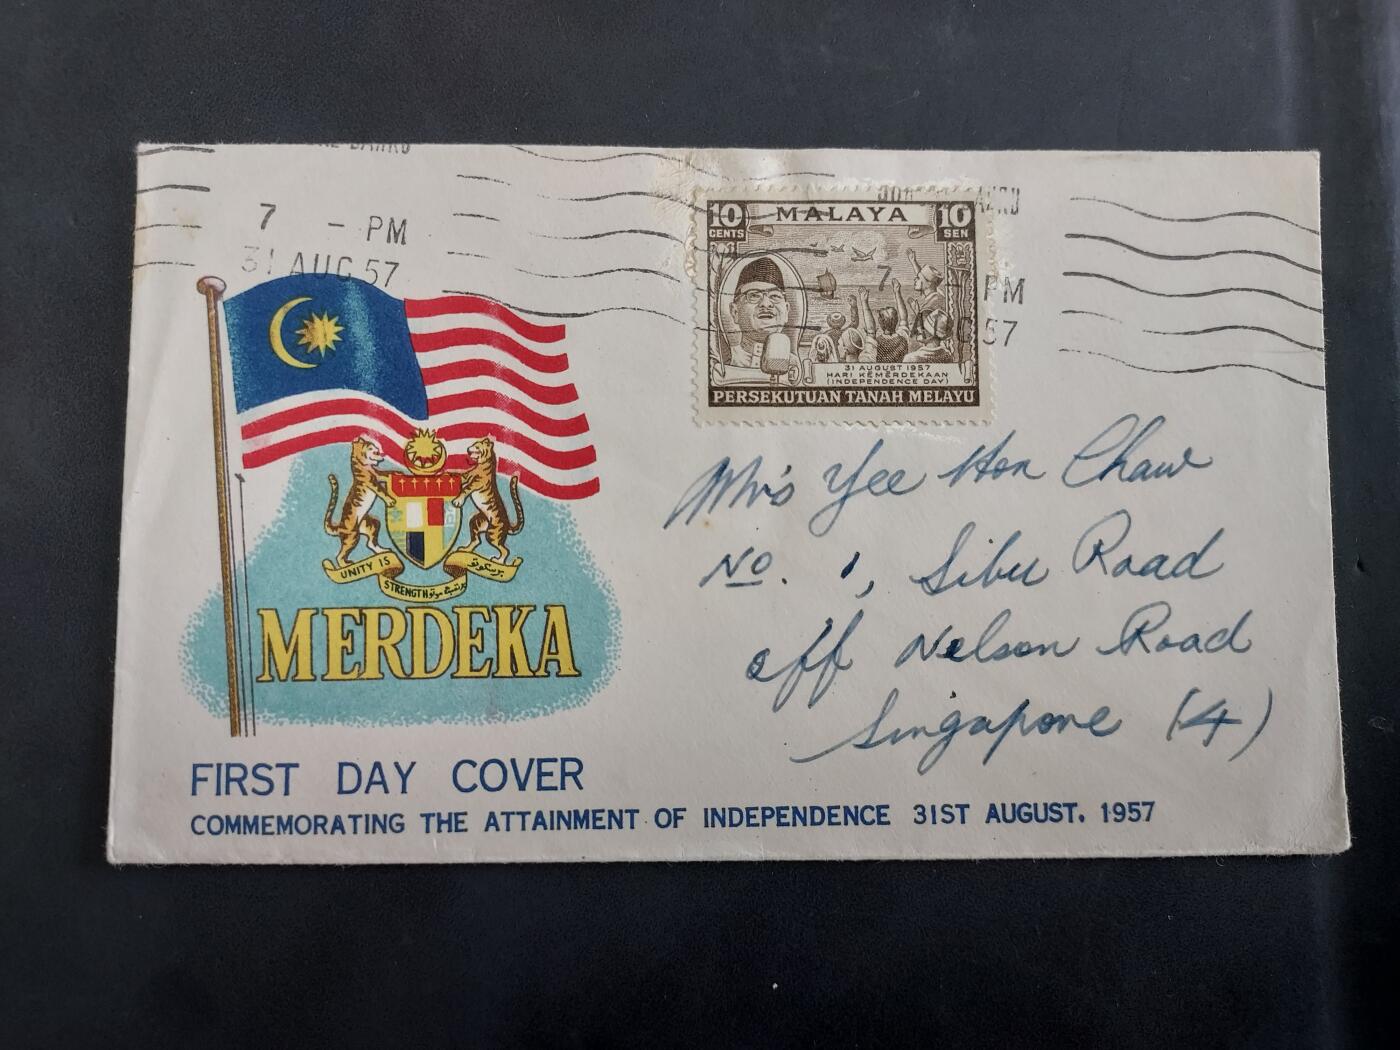 7 - PM
31 AUG 57
10 MALAYA 10
CENTS SEN
7 - PM
57
31 AUGUST 1957
HARI KEMERDEKAAN
(INDEPENDENCE DAY)
PERSEKUTUAN TANAH MELAYU
UNITY IS
STRENGTH
MERDEKA
Mrs Yee Hon Chaw
No. 1, Sibu Road
off Nelson Road
Singapore (4)
FIRST DAY COVER
COMMEMORATING THE ATTAINMENT OF INDEPENDENCE 31ST AUGUST. 1957